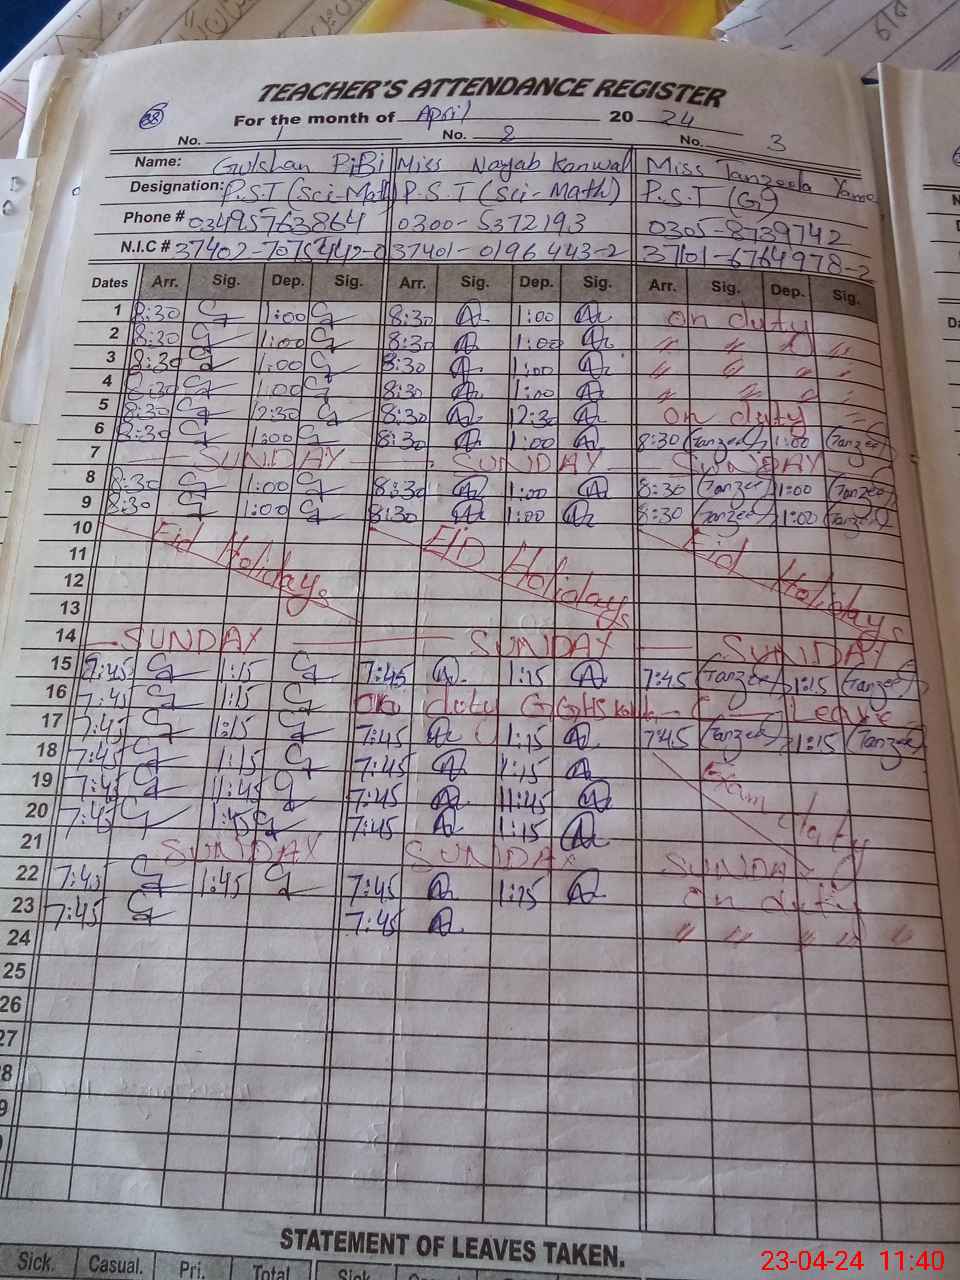 TEACHER'S ATTENDANCE REGISTER
38 For the month of April 20 24
No. 1 No. 2 No. 3
Name: Gulshan BiBi Miss Nayab Kanwal Miss Tanzeela
Designation: P.S.T (Sci-Math) P.S.T (Sci-Math) P.S.T (G)
Phone # 03495763864 0300-5372193 0305-8739742
N.I.C # 37401-0196443-2 37101-6764978-2
Dates Arr. Sig. Dep. Sig. Arr. Sig. Dep. Sig. Arr. Sig. Dep. Sig.
1 8:30 1:00 8:30 1:00 on duty
2 8:30 1:00 8:30 1:00 " " " "
3 8:30 1:00 8:30 1:00 " " " "
4 8:30 1:00 8:30 1:00 " " " "
5 8:30 12:30 8:30 12:30 on duty "
6 8:30 1:00 8:30 1:00 8:30 Tanzeel 1:00 Tanzeel
7 SUNDAY SUNDAY SUNDAY
8 8:30 1:00 8:30 1:00 8:30 Tanzeel 1:00 Tanzeel
9 8:30 1:00 8:30 1:00 8:30 Tanzeel 1:00 Tanzeel
10 Eid Holidays EID Holidays Eid Holidays
11
12
13
14 SUNDAY SUNDAY SUNDAY
15 7:45 1:15 7:45 1:15 7:45 Tanzeel 1:15 Tanzeel
16 7:45 1:15 On duty GGHS C Leave
17 7:45 1:15 7:45 1:15 7:45 Tanzeel 1:15 Tanzeel
18 7:45 1:15 7:45 1:15 Exam duty
19 7:45 11:45 7:45 11:45
20 7:45 1:45 7:45 1:15
21 SUNDAY SUNDAY SUNDAY
22 7:45 1:45 7:45 1:15 on duty
23 7:45 7:45 " " " " "
24
25
26
27
8
9
STATEMENT OF LEAVES TAKEN.
Sick. Casual. Pri. Total Sick
23-04-24 11:40